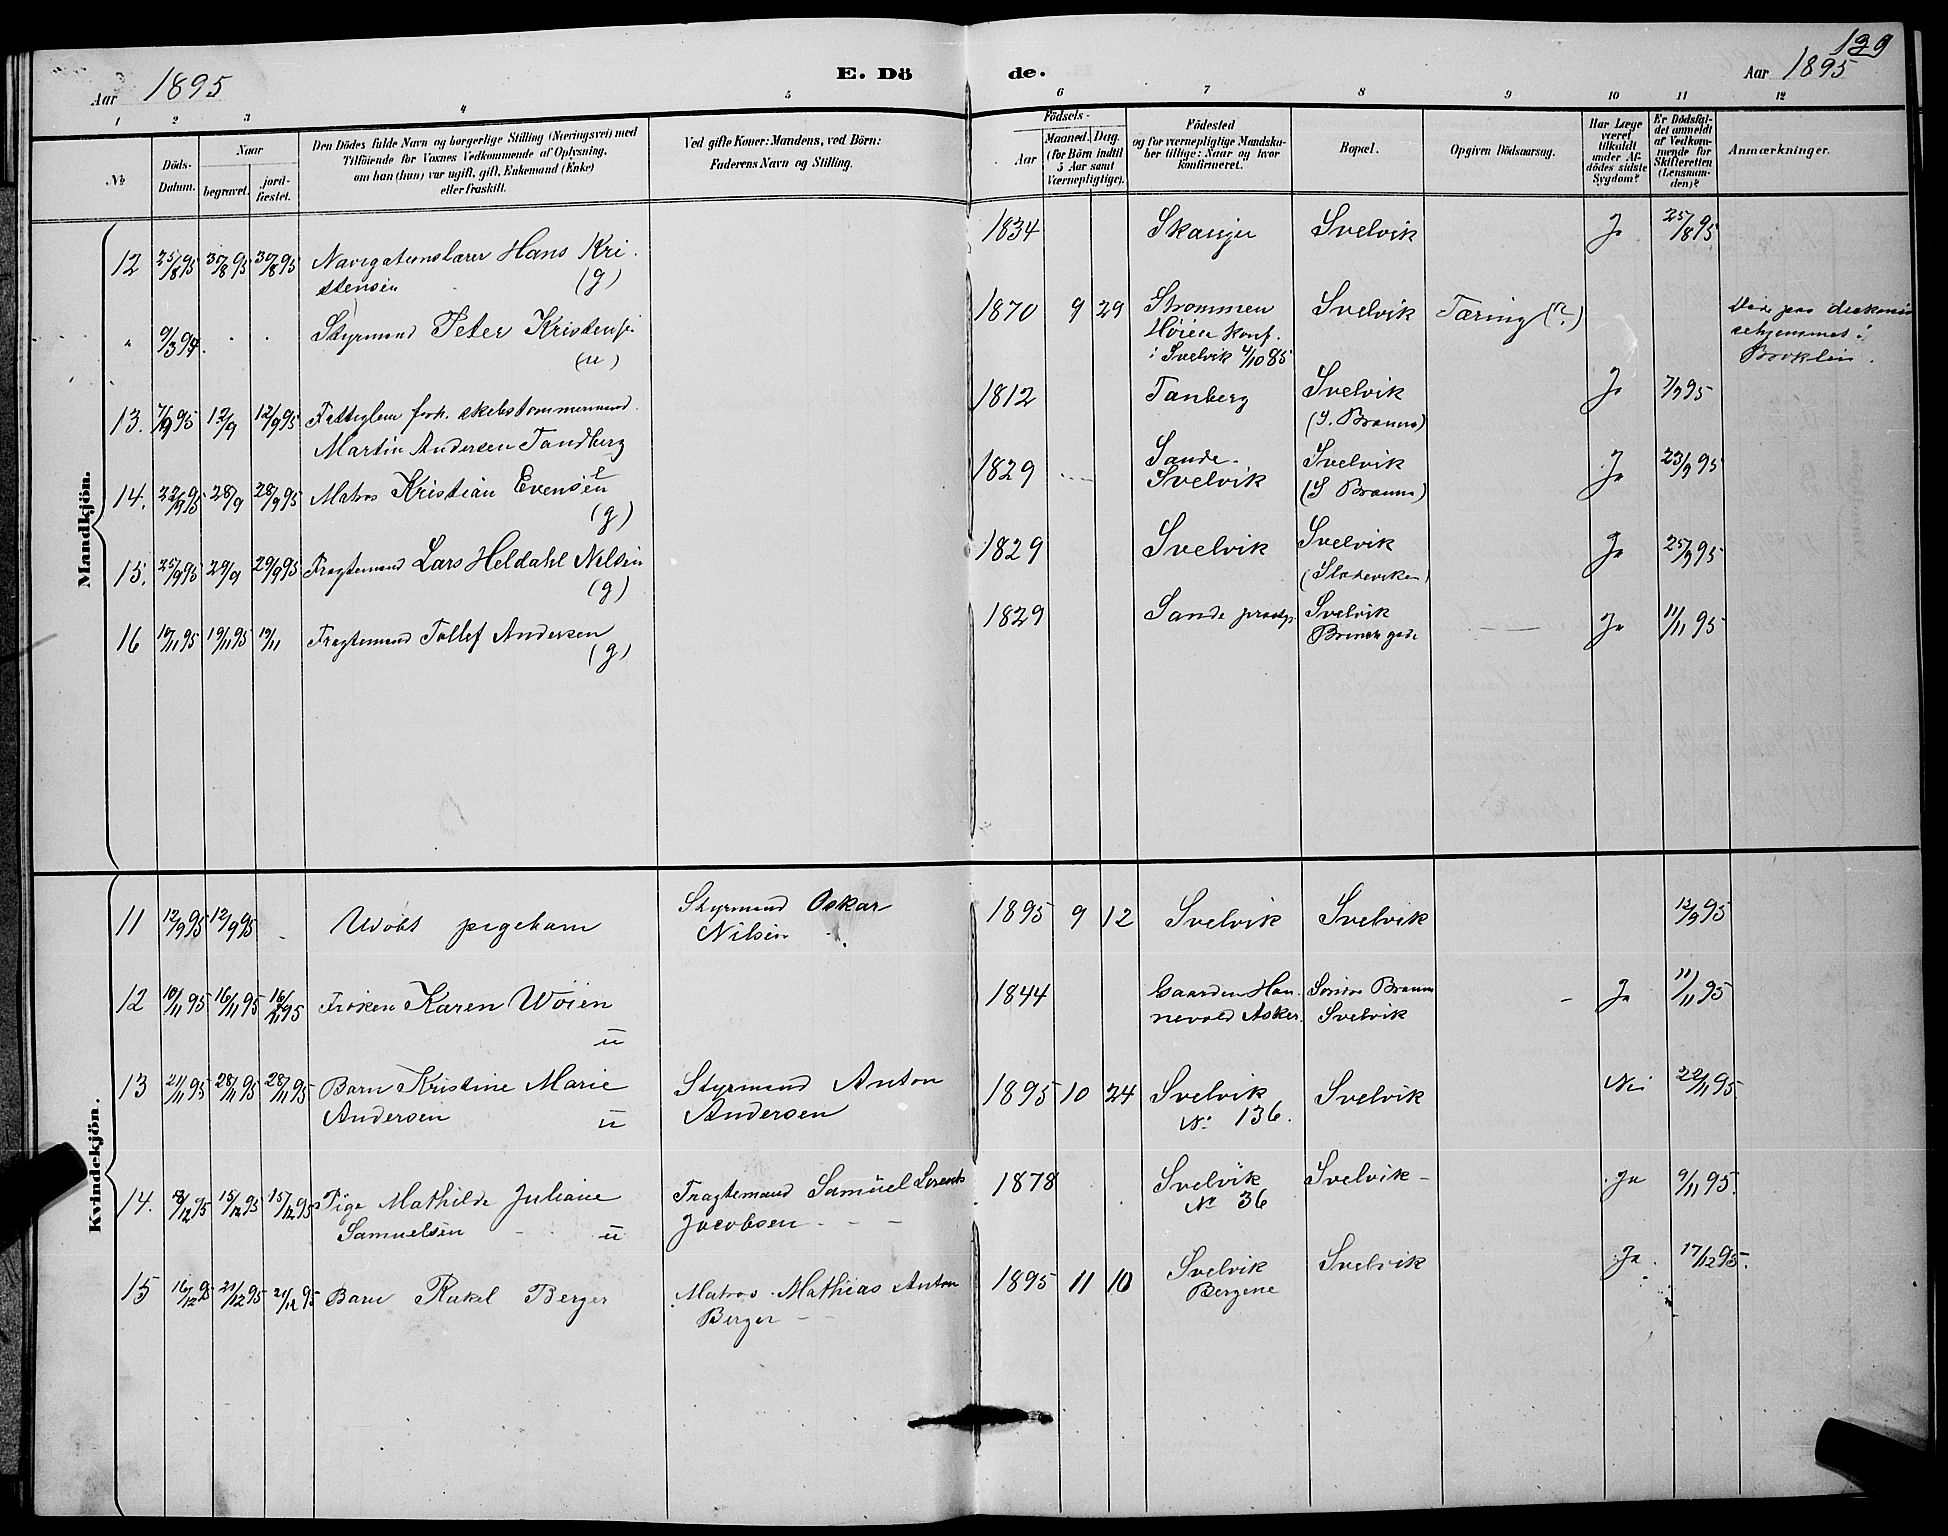 139
Aar 1895 E. Dö de. Aar 1895
1 2 3 4 5 6 7 8 9 10 11 12
№
Döds-Datum.
Naar
begravet. jord-fæstet.
Den Dödes fulde Navn og borgerlige Stilling (Næringsvei) med
Tilföiende for Voxnes Vedkommende af Oplysning,
om han (hun) var ugift, gift, Enkemand (Enke)
eller fraskilt.
Ved gifte Koner: Mandens, ved Börn:
Faderens Navn og Stilling.
Födsels-
Aar Maaned. Dag.
(for Börn indtil
5 Aar samt
Værnepligtige).
Födested
og for værnepligtige Mandsku-
ber tillige: Naar og hvor
konfirmeret.
Bopæl.
Opgiven Dödsaarsag.
Har Læge
været
tilkaldt
under Af-
dödes sidste
Sygdom?
Er Dödsfal-
det anmeldt
af Vedkom-
mende for
Skifteretten
(Lensman-
den)?
Anmærkninger.
Mandkjön.
12 25/8 95 30/8 95 30/8 95 Navigationslærer Hans Kri- 1834 Skanger Svelvik Ja 25/8 95
stensen (g)
" 9/3 94 Styrmand Peter Kristensen 1870 9 29 Strommen Svelvik Tæring (?)
(u) Høien Konf.
i Svelvik 4/10 85 Broklin.
13. 7/9 95 12/9 12/9 95 Fattiglem forh. skibstømmermand 1812 Tanberg Svelvik Ja 7/9 95
Martin Andersen Tandberg (S. Brænna)
14. 22/9 95 28/9 28/9 95 Matros Kristian Evensen 1829 Sande- Svelvik Ja 23/9 95
(g) Svelvik (S Brænna)
15. 25/9 95 29/9 29/9 95 Fragtemand Lars Heldahl Nilsen 1829 Svelvik Svelvik Ja 25/9 95
(g)
16 10/11 95 19/11 95 19/11 Fragtemand Tollef Andersen 1829 Sande præstgj Svelvik Ja 11/11 95
(g)
Kvindekjön.
11 12/9 95 12/9 95 Udøbt pigebarn Styrmand Oskar 1895 9 12 Svelvik Svelvik 13/9 95
Nilsen
12 10/11 95 16/11 95 16/11 95 Frøken Karen Woien 1844 Gaarden Han- Søndre Brænna Ja 11/11 95
u nevold Asker. Svelvik
13 21/11 95 28/11 95 28/11 95 Barn Kristine Marie Styrmand Anton 1895 10 24 Svelvik Svelvik Nei 22/11 95
Andersen u Andersen № 136.
14. 8/12 95 15/12 95 15/12 95 Pige Mathilde Juliane Fragtemand Samuel Lorents 1878 Svelvik Svelvik Ja 9/11 95.
Samuelsen u Jacobsen № 36
15 16/12 95 21/12 95 21/12 95 Barn Rakel Berger Matros Mathias Anton 1895 11 10 Svelvik Svelvik Ja. 17/12 95.
Berger Bergene